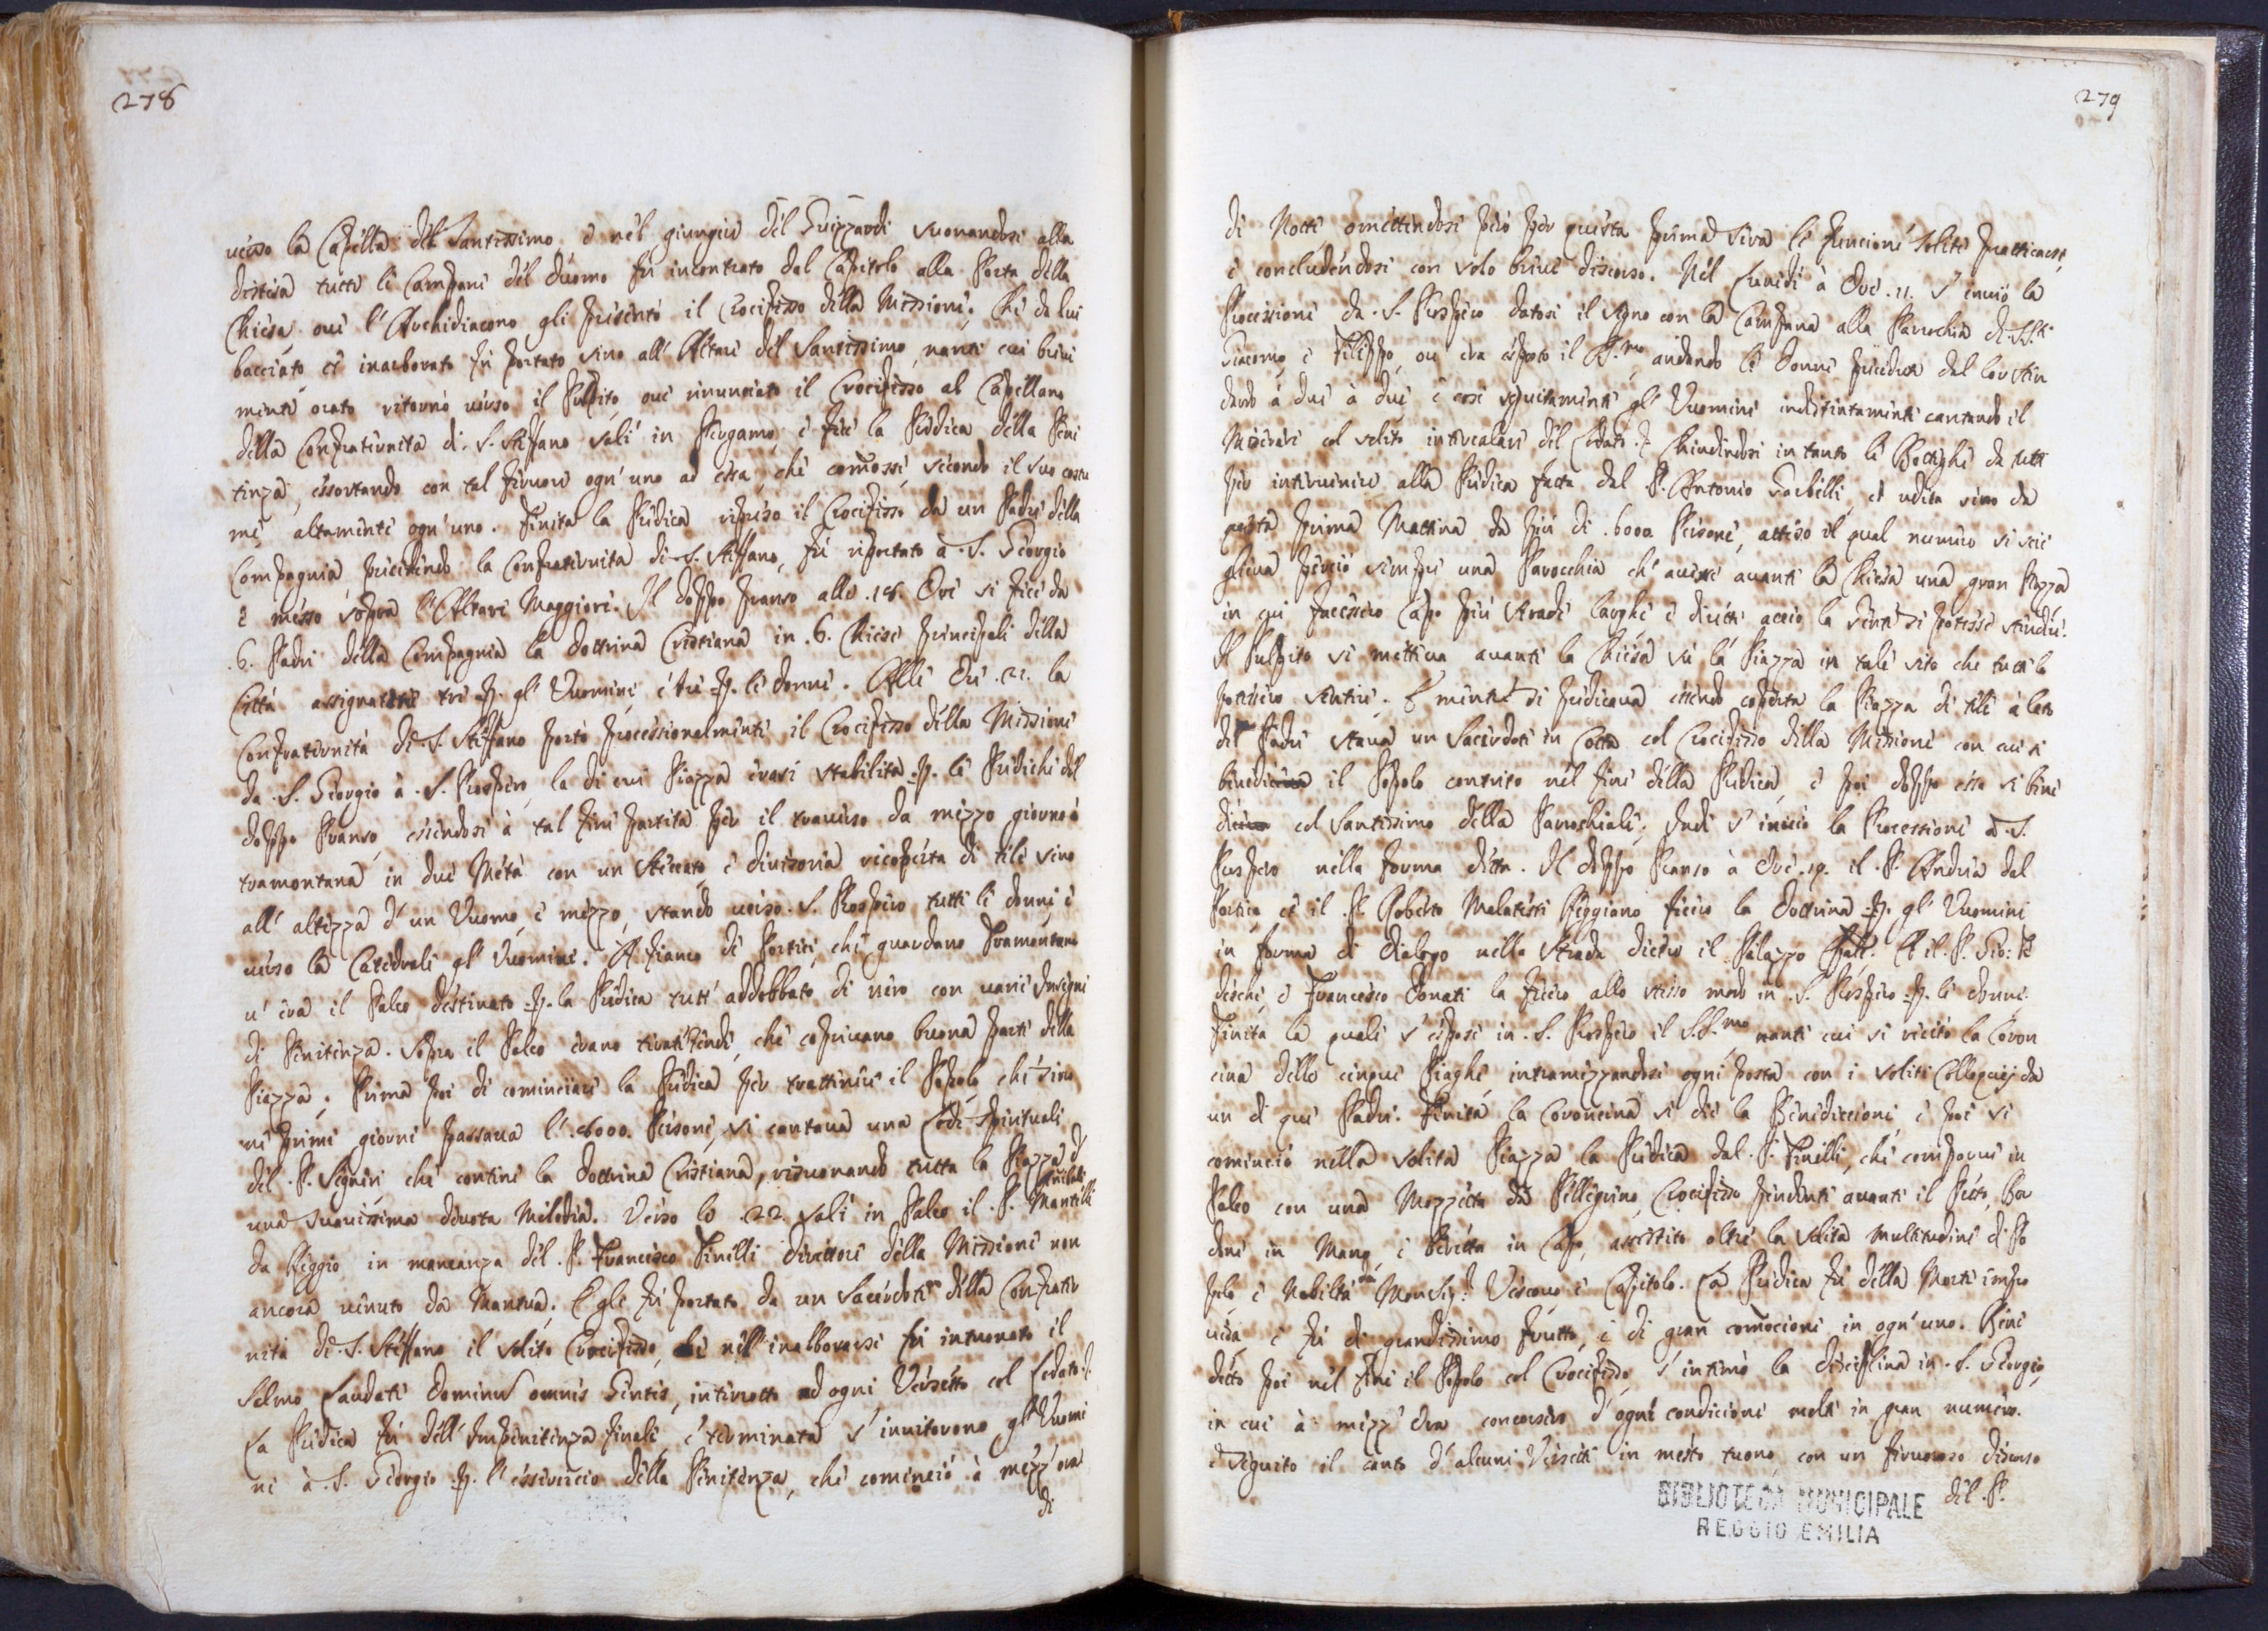 278
verso la Capella del Santissimo e nel giungere del Guizzardi suonandosi alla
distesa tutte le Campane del duomo fù incontrato dal Capitolo alla Porta della
Chiesa ove l'Archidiacono gli presentò il Crocifisso della Missione. Che da lui
bacciato et inarborato fù portato sino all'Altare del Santissimo, nanti cui breve
mente orato ritornò verso il Pulpito, ove rinunciato il Crocifisso al Capellano
della Confraternita di S. Steffano salì in Pergamo, e fece la Predica della Peni
tenza, essortando con tal fervore ogn'uno ad essa, che comosse, secondo il suo costu
me altamente ogn'uno. Finita la Predica ripreso il Crocifisso da un Padre della
Compagnia, precedendo la Confraternita di S. Steffano, fù riportato à S. Giorgio
e messo sopra l'Altare Maggiore. Il doppo pranso alle 18. Ore si fece da
6. Padri della Compagnia la Dottrina Cristiana in 6. Chiese principali della
Città assignate tre p. gl'Uomini, e tre p. le donne. Alle Ore 21. la
Confraternità di S. Steffano portò processionalmente il Crocifisso della Missione
da S. Giorgio à S. Prospero, la di cui Piazza erasi stabilita p. le Prediche del
doppo Pranso, essendosi à tal fine partita per il traverso da mezzo giorno à
tramontana in due Metà con un steccato, e divisoria ricoperta di tele sino
all'altezza d'un Uomo, e mezzo, stando verso S. Prospero tutte le donne, e
verso la Catedrale gl'Uomini. A fianco de Portici, che guardano Tramontana
v'era il Palco destinato p. la Predica tutt'addobbato di nero con varie Insegne
di Penitenza. Sopra il Palco erano tirate tende, che coprivano buona parte della
Piazza. Prima poi di cominciare la Predica per trattenere il Popolo, che sino
ne primi giorni passava l'8000. Persone, si cantava una Lode Spirituale
del P. Segneri che contine la Dottrina Cristiana, risuonando tutta la Piazza d'
una suavissima devota Melodia. Verso le 22. salì in Palco il P. Mantelli
da Reggio in mancanza del P. Francesco Finelli direttore della Missione non
ancora venuto da Mantova. Egli fù portato da un Sacerdote della Confrater
nita di S. Steffano il solito Crocifisso, e nell'inalborarsi fù intuonato il
Salmo Laudate Dominum omnes Gentes, interrotto ad ogni Versetto col Lodato.
La Predica fù dell'Impenitenza finale, e terminata s'invitorono gl'Uomi
ni à S. Giorgio p. l'essercicio della Penitenza, che cominciò à mezz'ora
di
279
di Notte, omettendosi però per questa prima sera le funcioni solite pratticarse,
e concludendosi con solo breve discorso. Nel Lunedì à Ore 11. s'inviò la
Processione da S. Prospero datosi il segno con la Campana alla Parochia di S.S.ti
Giacomo, e Filippo, ov era esposto il S.mo andando le donne precedute dal loro Sten
dardo à due à due e così seguitamente gl'Uomini indistintamente cantando il
Miserere col solito intercalare del Lodato. Chiudendosi in tanto le Botteghe da tutti
per intervenire alla Predica fatta dal P. Antonio et udita sino da
questa prima Mattina da più di 6000 Persone, atteso il qual numero si scie
glieva perciò sempre una Parocchia ch'avesse avanti la Chiesa una gran Piazza
in cui facessero Capo più Strade larghe e diritte acciò la gente si potesse stendere.
Il Pulpito si metteva avanti la Chiesa sù la Piazza in tale sito che tutti lo
potessero sentire. E mentre si predicava essendo coperta la Piazza di tele à lato
del Padre stava un Sacerdote in Cotta col Crocifisso della Missione con cui si
il Popolo contrito nel fine della Predica, e poi doppo esso si bene
col Santissimo della Parochiale. Indi s'inviò la Processione à S.
Prospero nella forma detta. Il doppo Pranso à Ore 19. il P. Andrea dal
Portico et il P. Roberto Malatesti Reggiano fecero la Dottrina p. gl'Uomini
in forma di Dialogo nella Strada dietro il Palazzo Et il P. Gio: Te
deschi, e Francesco Donati la fecero allo stesso modo in S. Prospero p. le donne.
Finita la quale s'espose in S. Prospero il S.S.mo nanti cui si recitò la Coron
cina delle cinque Piaghe, intramezzandosi ogni posta con i soliti Colloquij da
un di que Padri. Finita la Coroncina si diè la Benediccione, e poi si
cominciò nella solita Piazza la Predica dal P. Finelli, che comparve in
Palco con una Mozzetta da Pellegrino, Crocifisso pendente avanti il Petto, Bor
done in Mano, e Beretta in Capo, assistito oltre la solita multitudine di Po
polo e Nobiltà da Monsig.r Vescovo e Capitolo. La Predica fù della Morte impro
visa, e fù di grandissimo frutto, e di gran comocione in ogn'uno. Bene
detto poi nel fine il Popolo col Crocifisso, s'intimò la disciplina in S. Giorgio,
in cui à mezz'Ora concorsero d'ogni condicione molti in gran numero.
e seguito il canto d'alcuni Versetti in mesto tuono, con un fervoroso discorso
del P.
BIBLIOTECA MUNICIPALE
REGGIO EMILIA